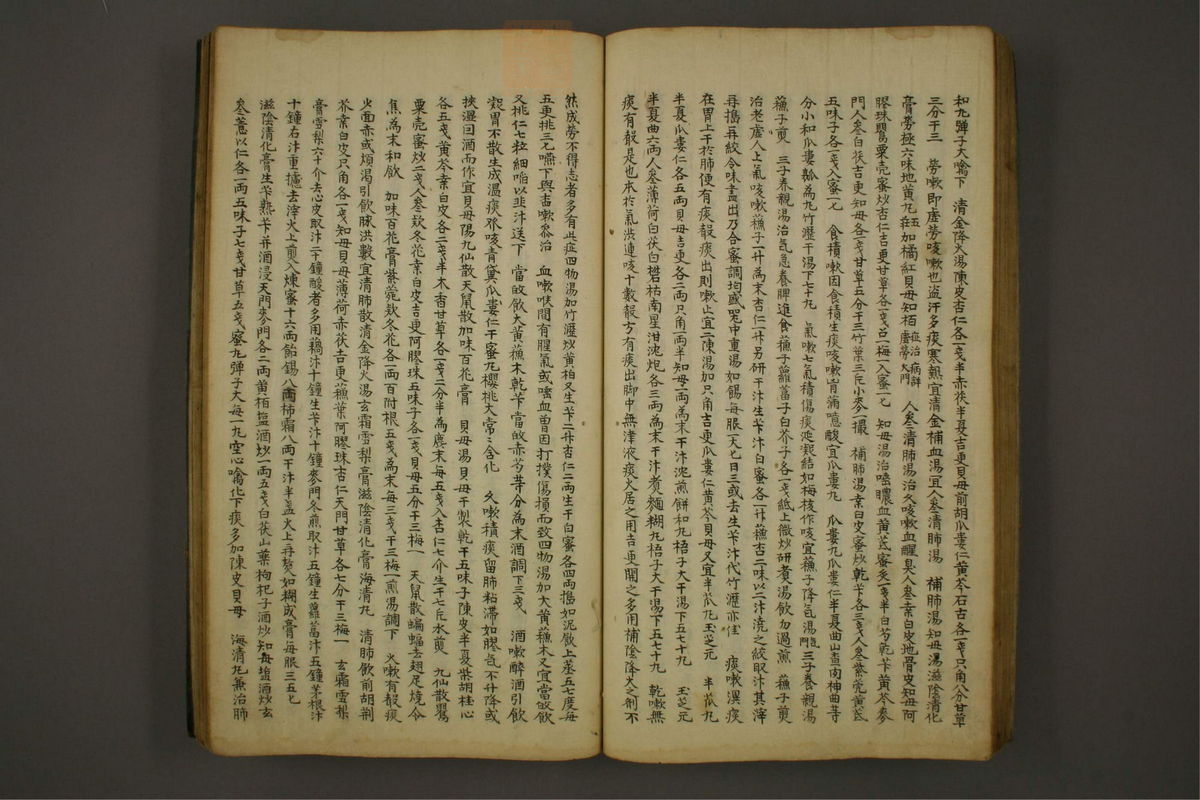 和丸彈子大噙下 清金降火湯陳皮杏仁各一戔半赤茯半夏吉更貝母前胡瓜婁仁黃芩石古各一戔只角八分甘草
三分干三 勞嗽即虛勞咳嗽也盜汗多痰寒熱宜清金補血湯宜人參清肺湯 補肺湯知母湯滋陰清化
膏勞極六味地黃丸 加橘紅貝母知栢 症治病詳虛勞火門 人參清肺湯治久咳嗽血腥臭人參桑白皮地骨皮知母阿
膠珠罌粟壳蜜炒杏仁吉更甘草各一戔召一梅一入蜜一匕 知母湯治嗌膿血黃芪蜜炙一戔半白芍乾芐黃芩麥
門人參白茯吉更知母各一戔甘草五分干三竹葉三斤小麥一撮 補肺湯桑白皮蜜炒乾芐各三戔人參紫菀黃芪
五味子各一戔入蜜一匕 食積嗽因食積生痰咳嗽胷滿噫酸宜瓜婁丸 瓜婁丸瓜婁仁半夏曲山査肉神曲等
分小和瓜婁瓤為丸竹瀝干湯下七十丸 氣嗽七氣積傷痰涎凝結如梅核作咳宜蘓子降气湯 三子養親湯
蘓子煎 三子養親湯治氣急養脾進食蘓子蘿葍子白芥子各一戔紙上微炒硏煑湯飲勿過煎 蘓子煎
治老虛人上氣咳嗽蘓子一升為末杏仁一升另硏干汁生芐汁白蜜各一升蘓杏二味以二汁澆之絞取汁其滓
再搗再絞令味盡出乃合蜜調均或瓷中重湯如餳每服一大匕日三或去生芐汁代竹瀝亦佳 痰嗽溼痰
在胃上干於肺便有痰聲痰出則嗽止宜二陳湯加只角吉更瓜婁仁黃芩貝母又宜半瓜丸玉芝元 半瓜丸
半夏瓜婁仁各五兩貝母吉更各二兩只角一兩半知母一兩為末干汁泡煎餅和丸梧子大干湯下五七十丸 玉芝元
半夏曲六兩人參薄荷白茯白礬枯南星泔沈炮各三兩為末干汁煑麵糊丸梧子大干湯下五七十丸 乾嗽無
痰有聲是也本於氣澁連咳十數聲方有痰出脚中無津液痰火居之用吉更開之多用補陰降火之剤不
然成勞不得志者多有此症四物湯加竹瀝炒黃栢又生芐二升杏仁二兩生干白蜜各四兩搗如泥飯上蒸五七度每
五更挑三匕嚥下與杳嗽叅治 血嗽喉間有腥氣或嗌血曽因打撲傷損而致四物湯加大黃蘓木又宜當皈飲
又桃仁七粒細咽以韭汁送下 當皈飲大黃蘓木乾芐當皈赤芍等分為末酒調下三戔 酒嗽醉酒引飲
裂胃不散生成溫痰作咳青黛瓜婁仁干蜜丸櫻桃大常常含化 久嗽積痰留肺粘滯如膠气不升降或
挾濕囙酒而作宜貝母湯九仙散天鼠散加味百花膏 貝母湯貝母干製乾干五味子陳皮半夏柴胡桂心
各五戔黃芩桑白皮各二戔半木香甘草各一戔二分半為麁末每五戔入杏仁七介生干七斤水煎 九仙散罌
粟壳蜜炒二戔人參欵冬花桑白皮吉更阿膠珠五味子各一戔貝母五分干三梅一 天鼠散蝙蝠去翅足燒令
焦為末和飲 加味百花膏紫菀欵冬花各一兩百附根五戔為末每三戔干三梅一煎湯調下 火嗽有聲痰
少面赤或煩渴引飲脉洪數宜清肺散清金降火湯玄霜雪梨膏滋陰清化膏海清丸 清肺飲前胡荆
芥桑白皮只角各一戔知母貝母薄荷赤茯吉更蘓葉阿膠珠杏仁天門甘草各七分干三梅一 玄霜雪梨
膏雪梨六十介去心皮取汁二十鐘酸者多用藕汁十鐘生芐汁十鐘麥門冬煎取汁五鐘生蘿葍汁五鐘茅根汁
十鐘右汁重攄去滓火上煎入煉蜜十六兩飴錫八兩柹霜八兩干汁半盞火上再熬如糊成膏每服三五匕
滋陰清化膏生芐熟芐并酒浸天門麥門各二兩黃栢塩酒炒一兩五戔白茯山藥枸杞子酒炒知母塩酒炒玄
參薏以仁各一兩五味子七戔甘草五戔蜜丸彈子大每一丸空心噙化下痰多加陳皮貝母 海清丸兼治肺